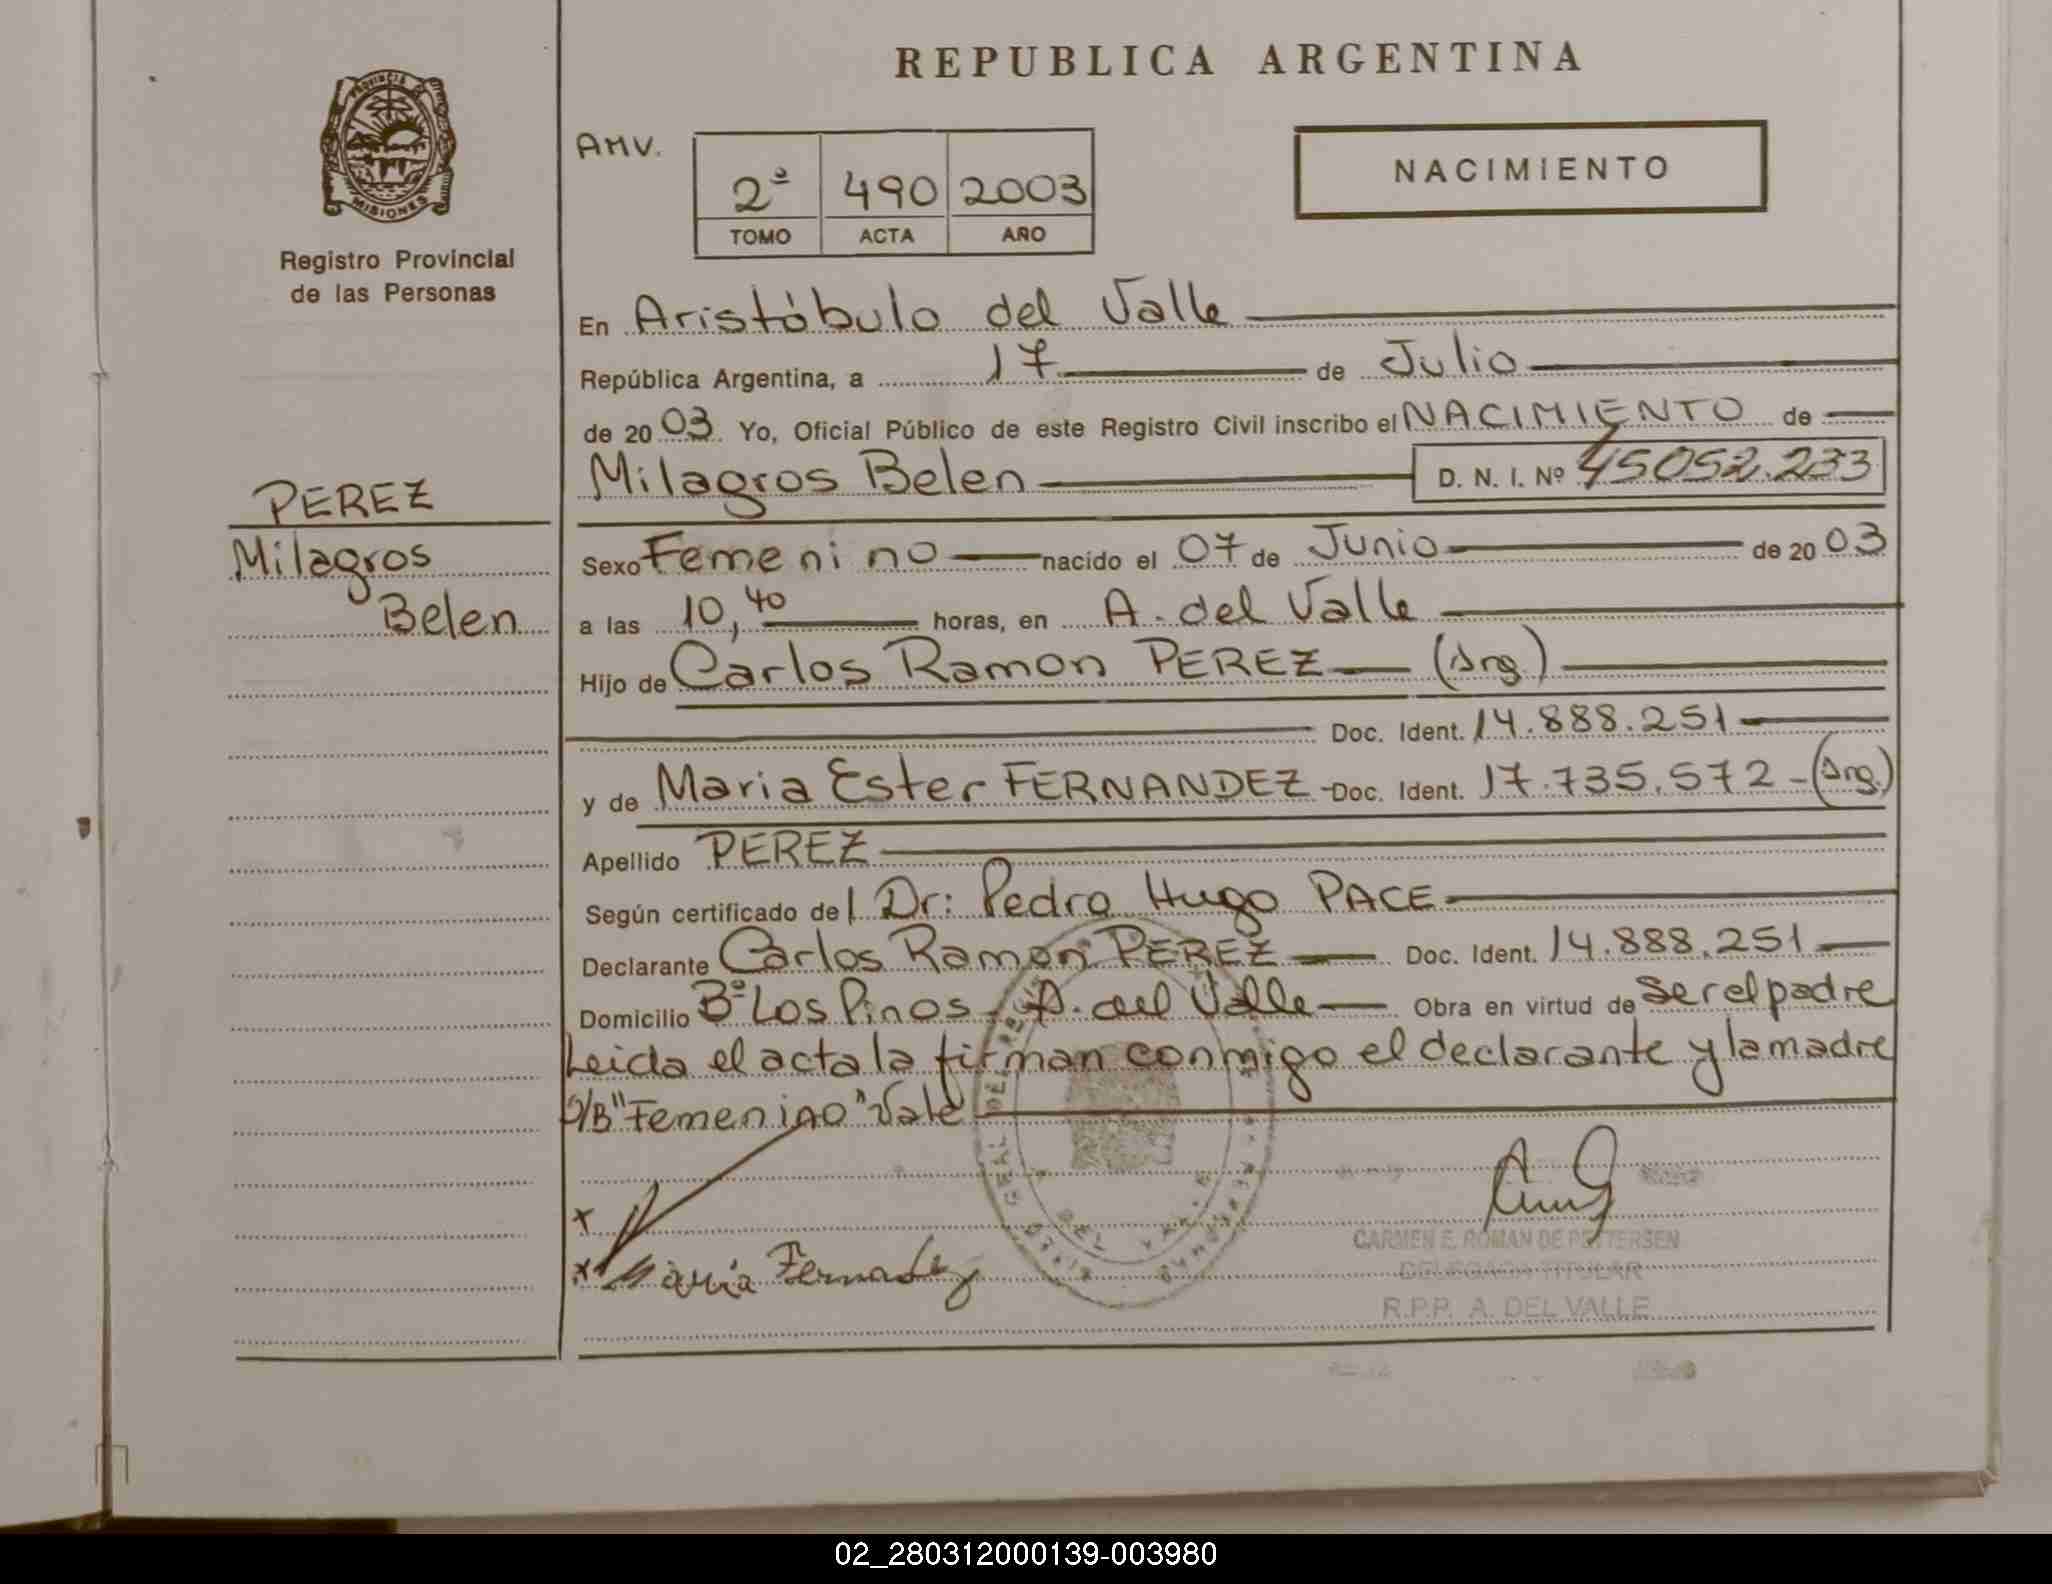 REPUBLICA ARGENTINA
PROVINCIA DE
MISIONES
Registro Provincial
de las Personas
AMV.
2ª 490 2003
TOMO ACTA AÑO
NACIMIENTO
PEREZ
Milagros
Belen
En Aristóbulo del Valle
República Argentina, a 17 de Julio
de 2003 Yo, Oficial Público de este Registro Civil inscribo el NACIMIENTO de
Milagros Belen D. N. I. Nº 45052.233
Sexo Femenino nacido el 07 de Junio de 2003
a las 10,40 horas, en A. del Valle
Hijo de Carlos Ramon PEREZ (Arg.)
Doc. Ident. 14.888.251
y de Maria Ester FERNANDEZ - Doc. Ident. 17.735.572 - (Arg.)
Apellido PEREZ
Según certificado del Dr: Pedro Hugo PACE
Declarante Carlos Ramon PEREZ Doc. Ident. 14.888.251
Domicilio Bº Los Pinos - A. del Valle Obra en virtud de ser el padre
Leida el acta la firman conmigo el declarante y la madre
S/B "Femenino" Vale
x
x Maria Fernandez
CARMEN E. ROMAN DE PETTERSEN
DELEGADA TITULAR
R.P.P. A. DEL VALLE
02_280312000139-003980